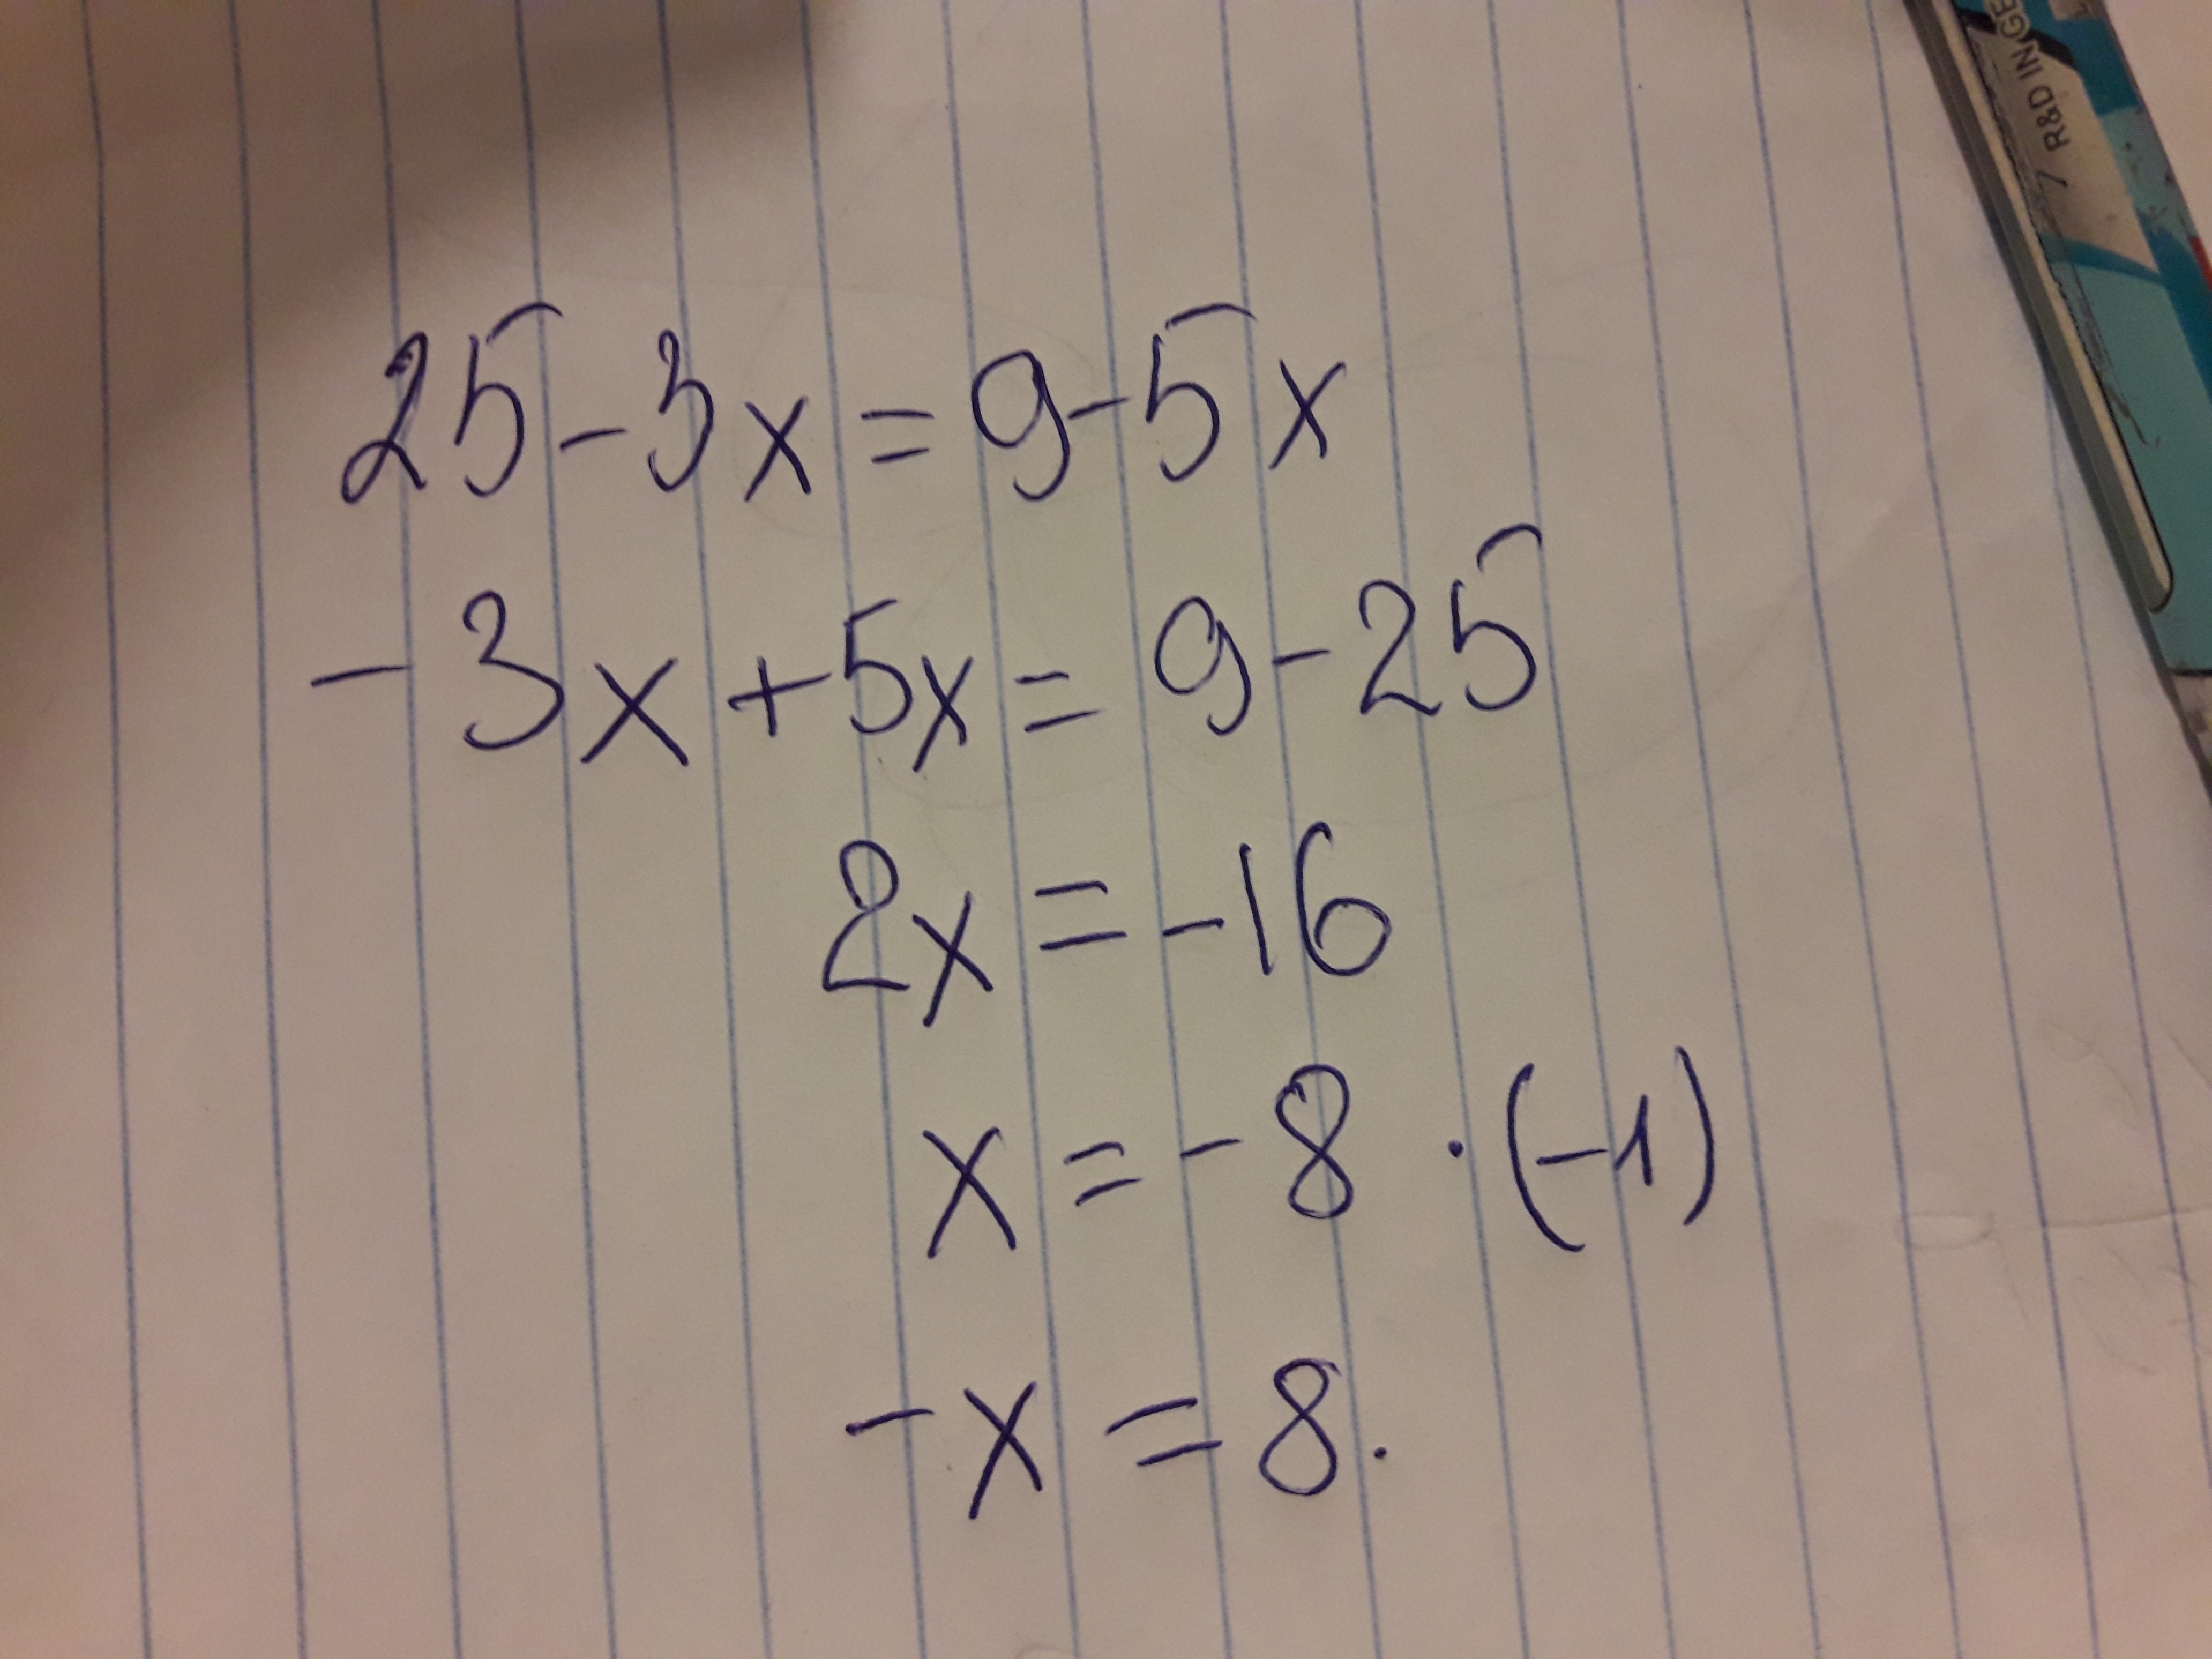 25-3x=9-5x
-3x+5x=9-25
2x=-16
x=-8 ·(-1)
-x=8.
R&D IN GE